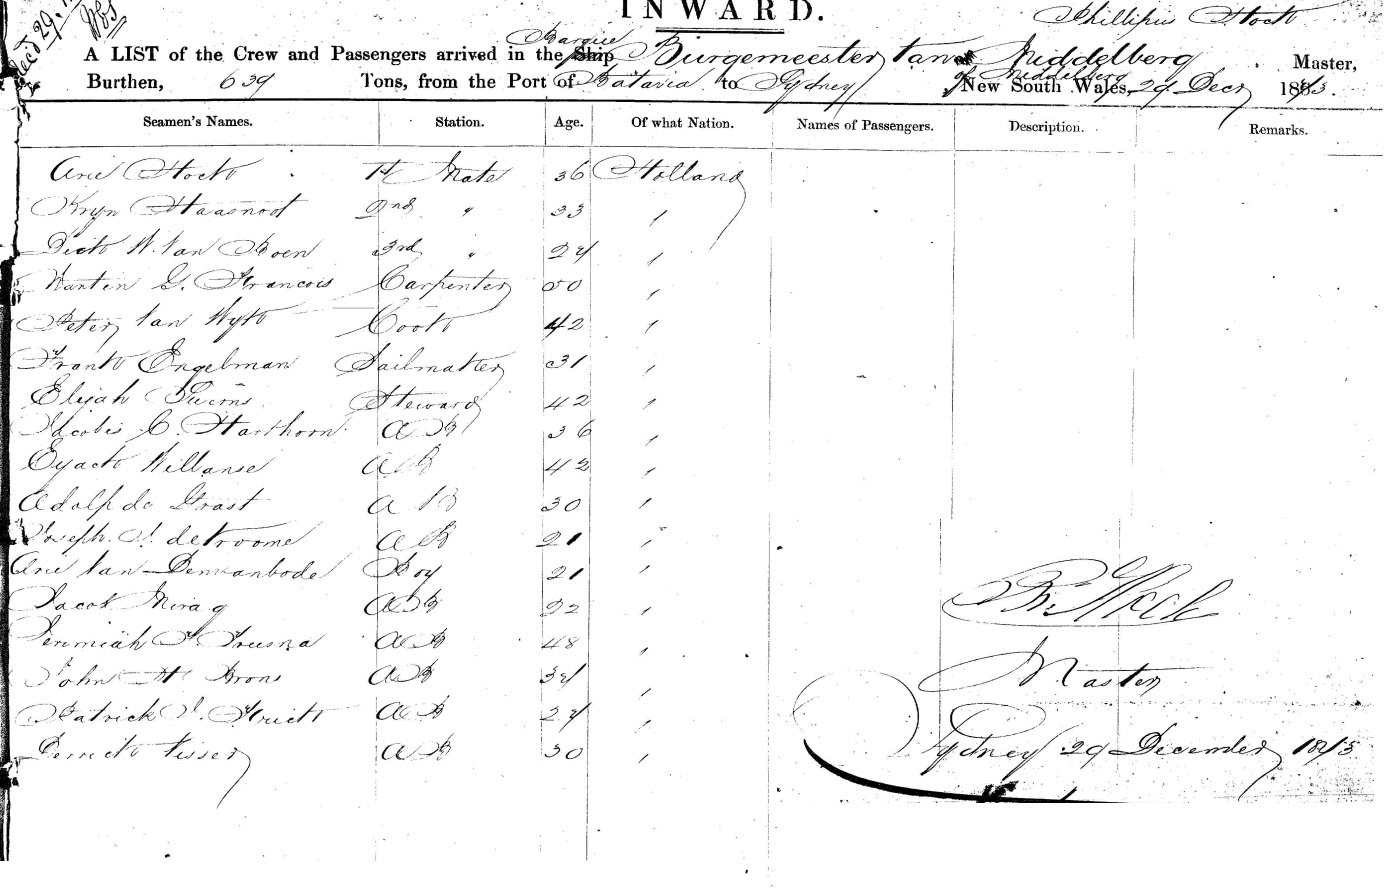 INWARD.
Recd 29.
Phillipus Hock
Barque
A LIST of the Crew and Passengers arrived in the Ship Burgemeester Van Middelberg Master,
of Middelberg
Burthen, 639 Tons, from the Port of Batavia to Sydney New South Wales, 29 Decr 1873.
Seamen's Names. Station. Age. Of what Nation. Names of Passengers. Description. Remarks.
Arie Hock 1st Mate 36 Holland
Kryn Haasnoot 2nd " 33 "
Dick W. Van Roen 3rd " 24 "
G. Francois Carpenter 50 "
Peter Van Wyk Cook 42 "
Frank Engelman Sailmaker 31 "
Elijah Steward 42 "
Jacobis C. Harthorn AB 36 "
Willanse AB 42 "
Adolf de Grast AB 30 "
Joseph J. de Troome AB 21 "
Arie Van Boy 21 "
Jacob AB 22 "
Jeremiah AB 48 "
John H AB 34 "
Patrick J. AB 24 "
Derrick Visser AB 30 "
Ph. Hock
Master
Sydney 29 December 1873